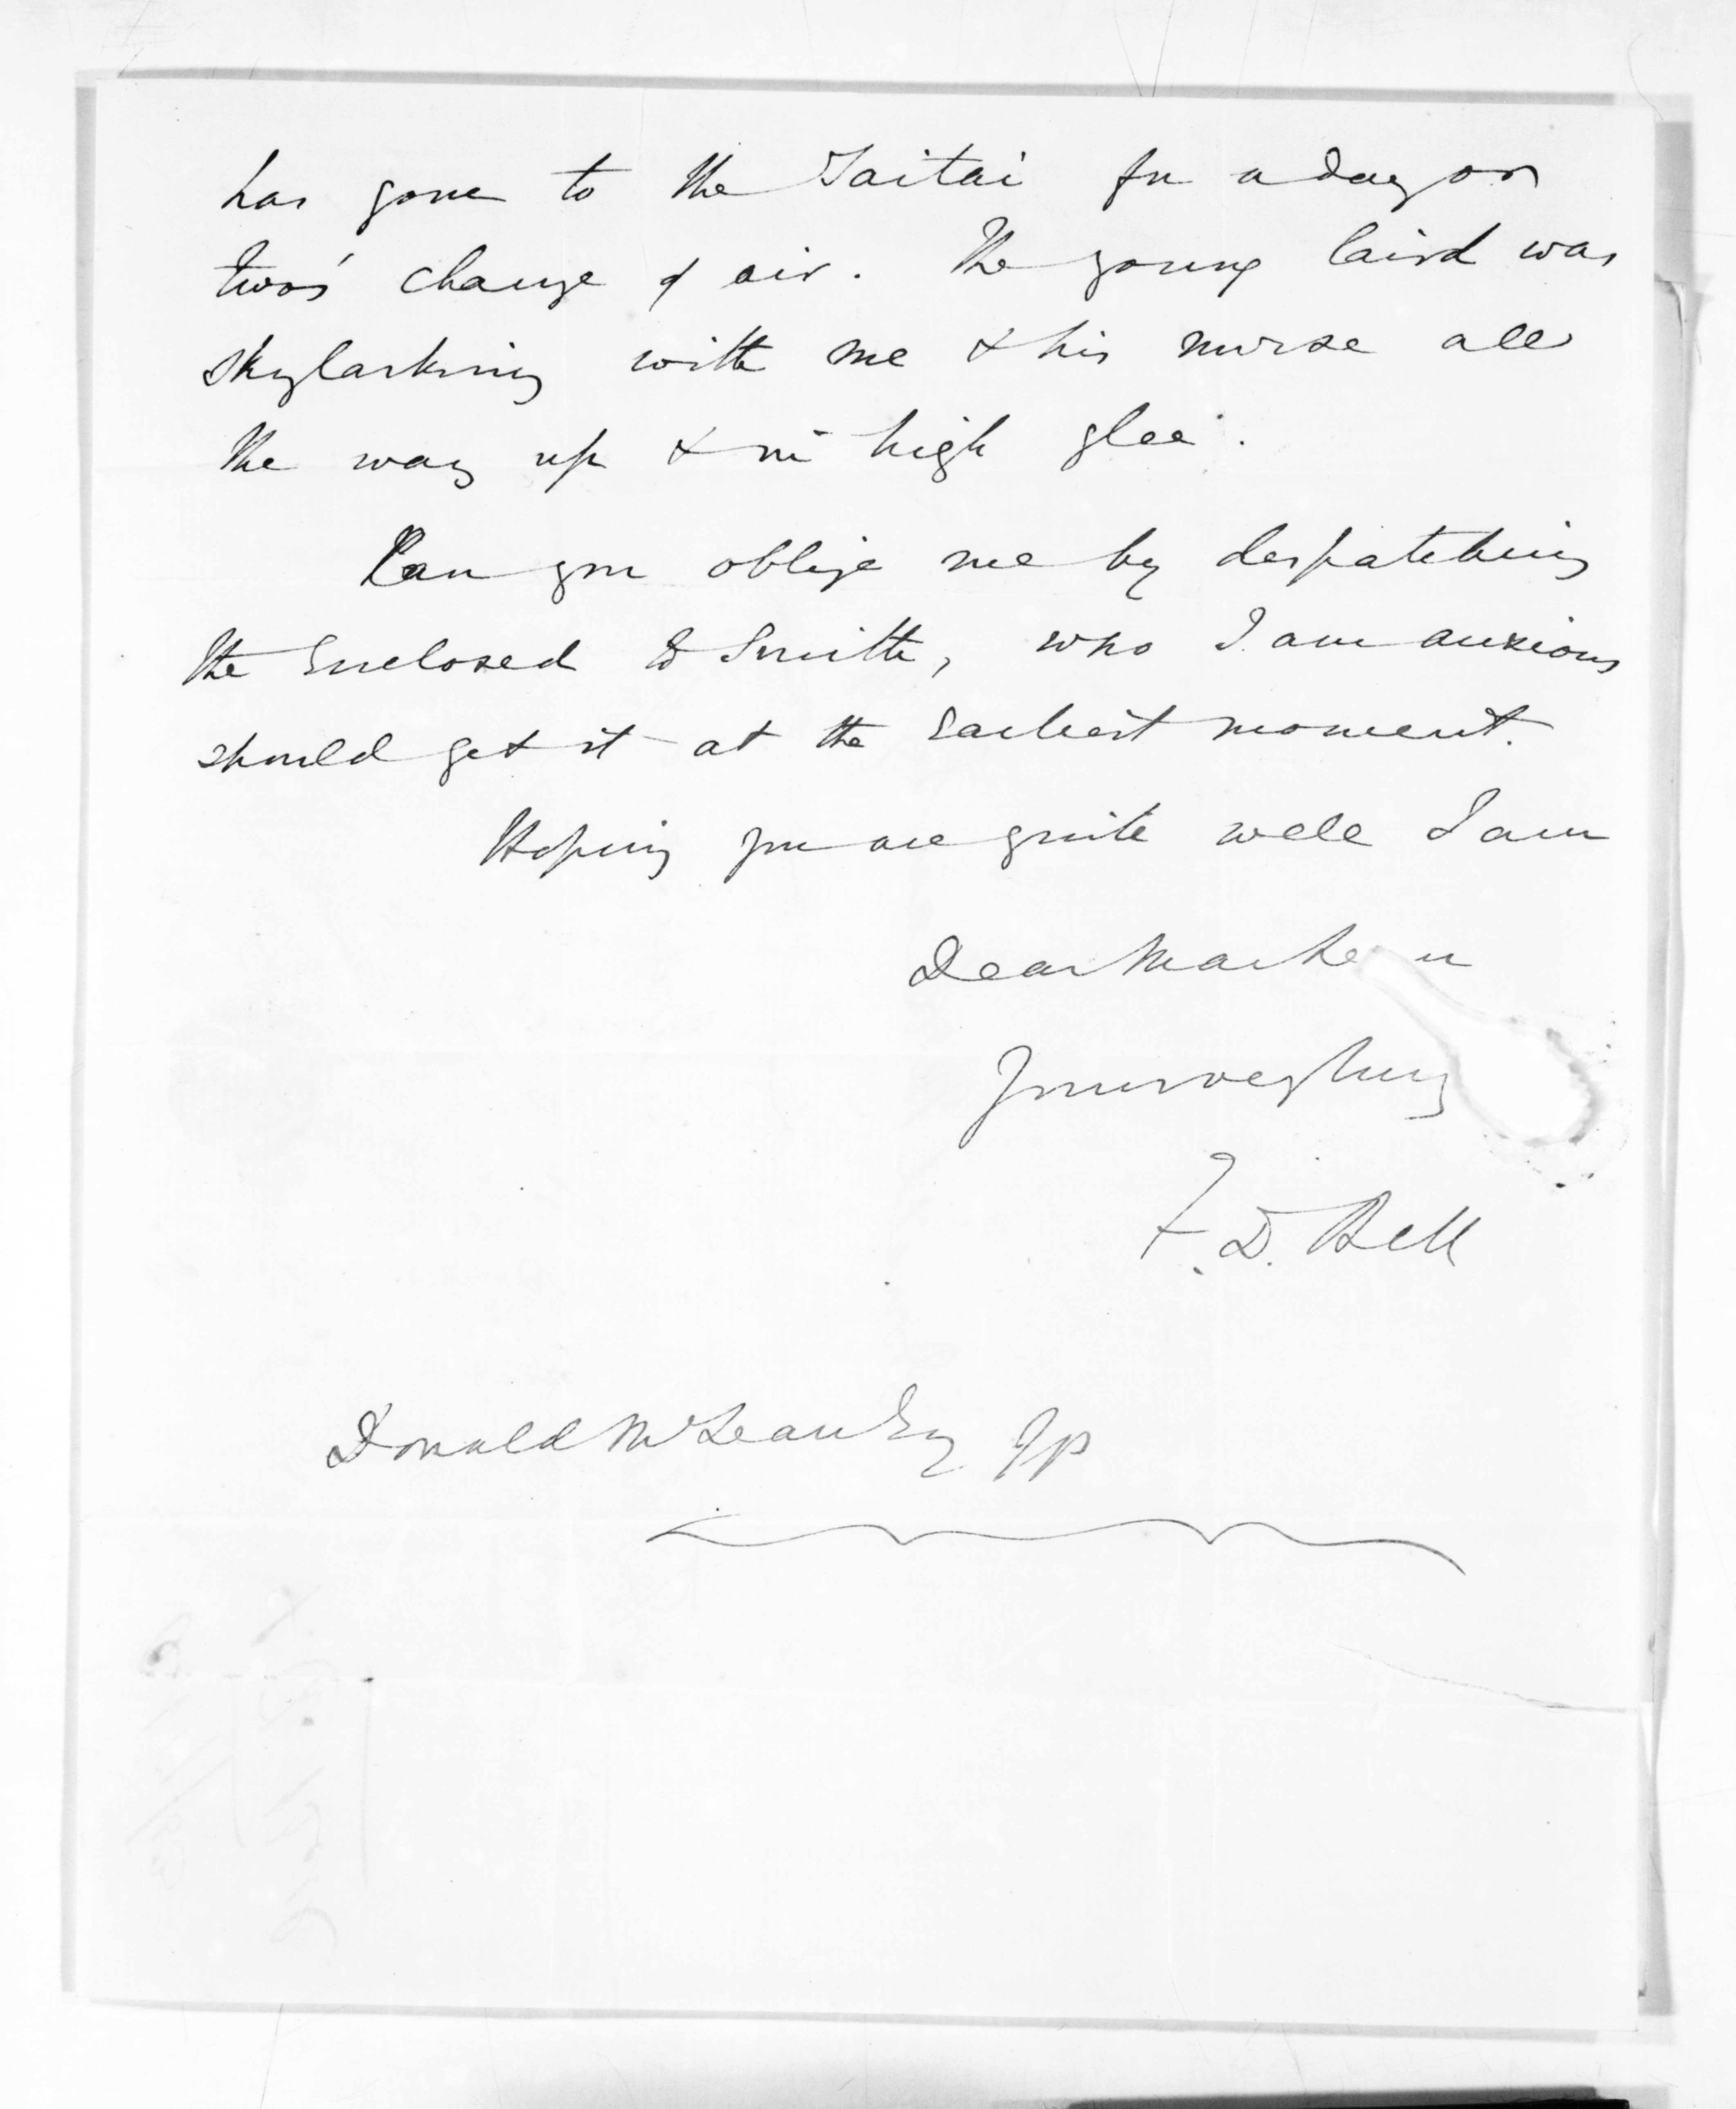 has gone to the Taitai for a day or
two's change of air. The young laird was
skylarking with me & his nurse all
the way up & in high glee.
Can you oblige me by despatching
the enclosed to Smith, who I am anxious
should get it at the earliest moment.
Hoping you are quite well I am
Dear MacLean
Yours very truly
F. D. Bell
Donald McLean Esq JP